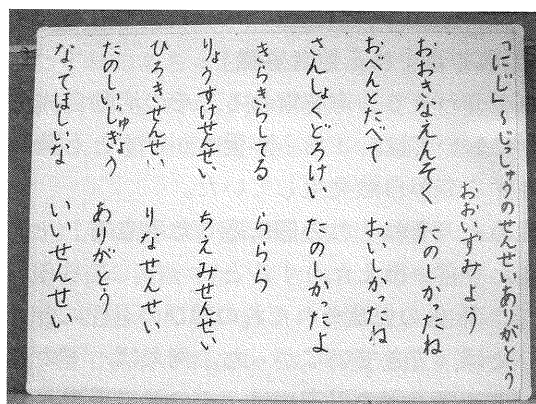 「にじ」～じっしゅうのせんせいありがとう
おおいずみよう
おおきなえんそく　たのしかったね
おべんとたべて　おいしかったね
さんしょくどろけい　たのしかったよ
きらきらしてる　ららら
りょうすけせんせい　ちえみせんせい
ひろきせんせい　りなせんせい
たのしいじゅぎょう　ありがとう
なってほしいな　いいせんせい